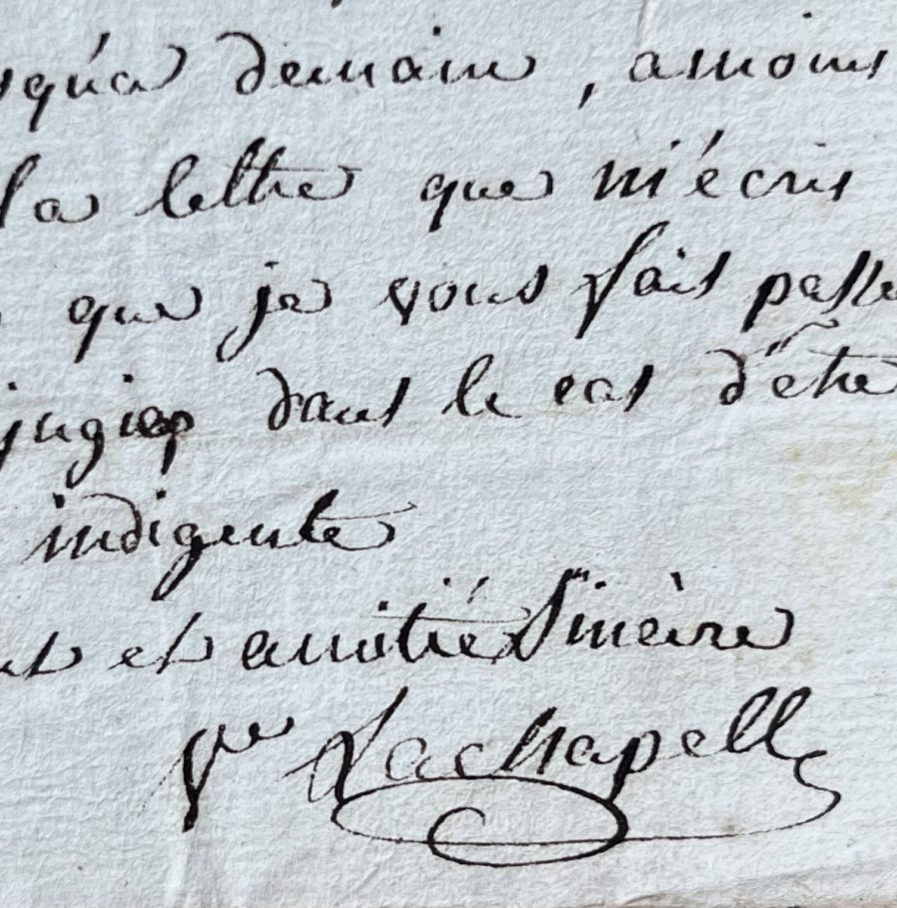 squ'a demain, amoins
la lettre que m'écris
que je vous fait passe
jugiep dans le cas d'être
indigente
et amitié Sincère
Ve Lachapelle